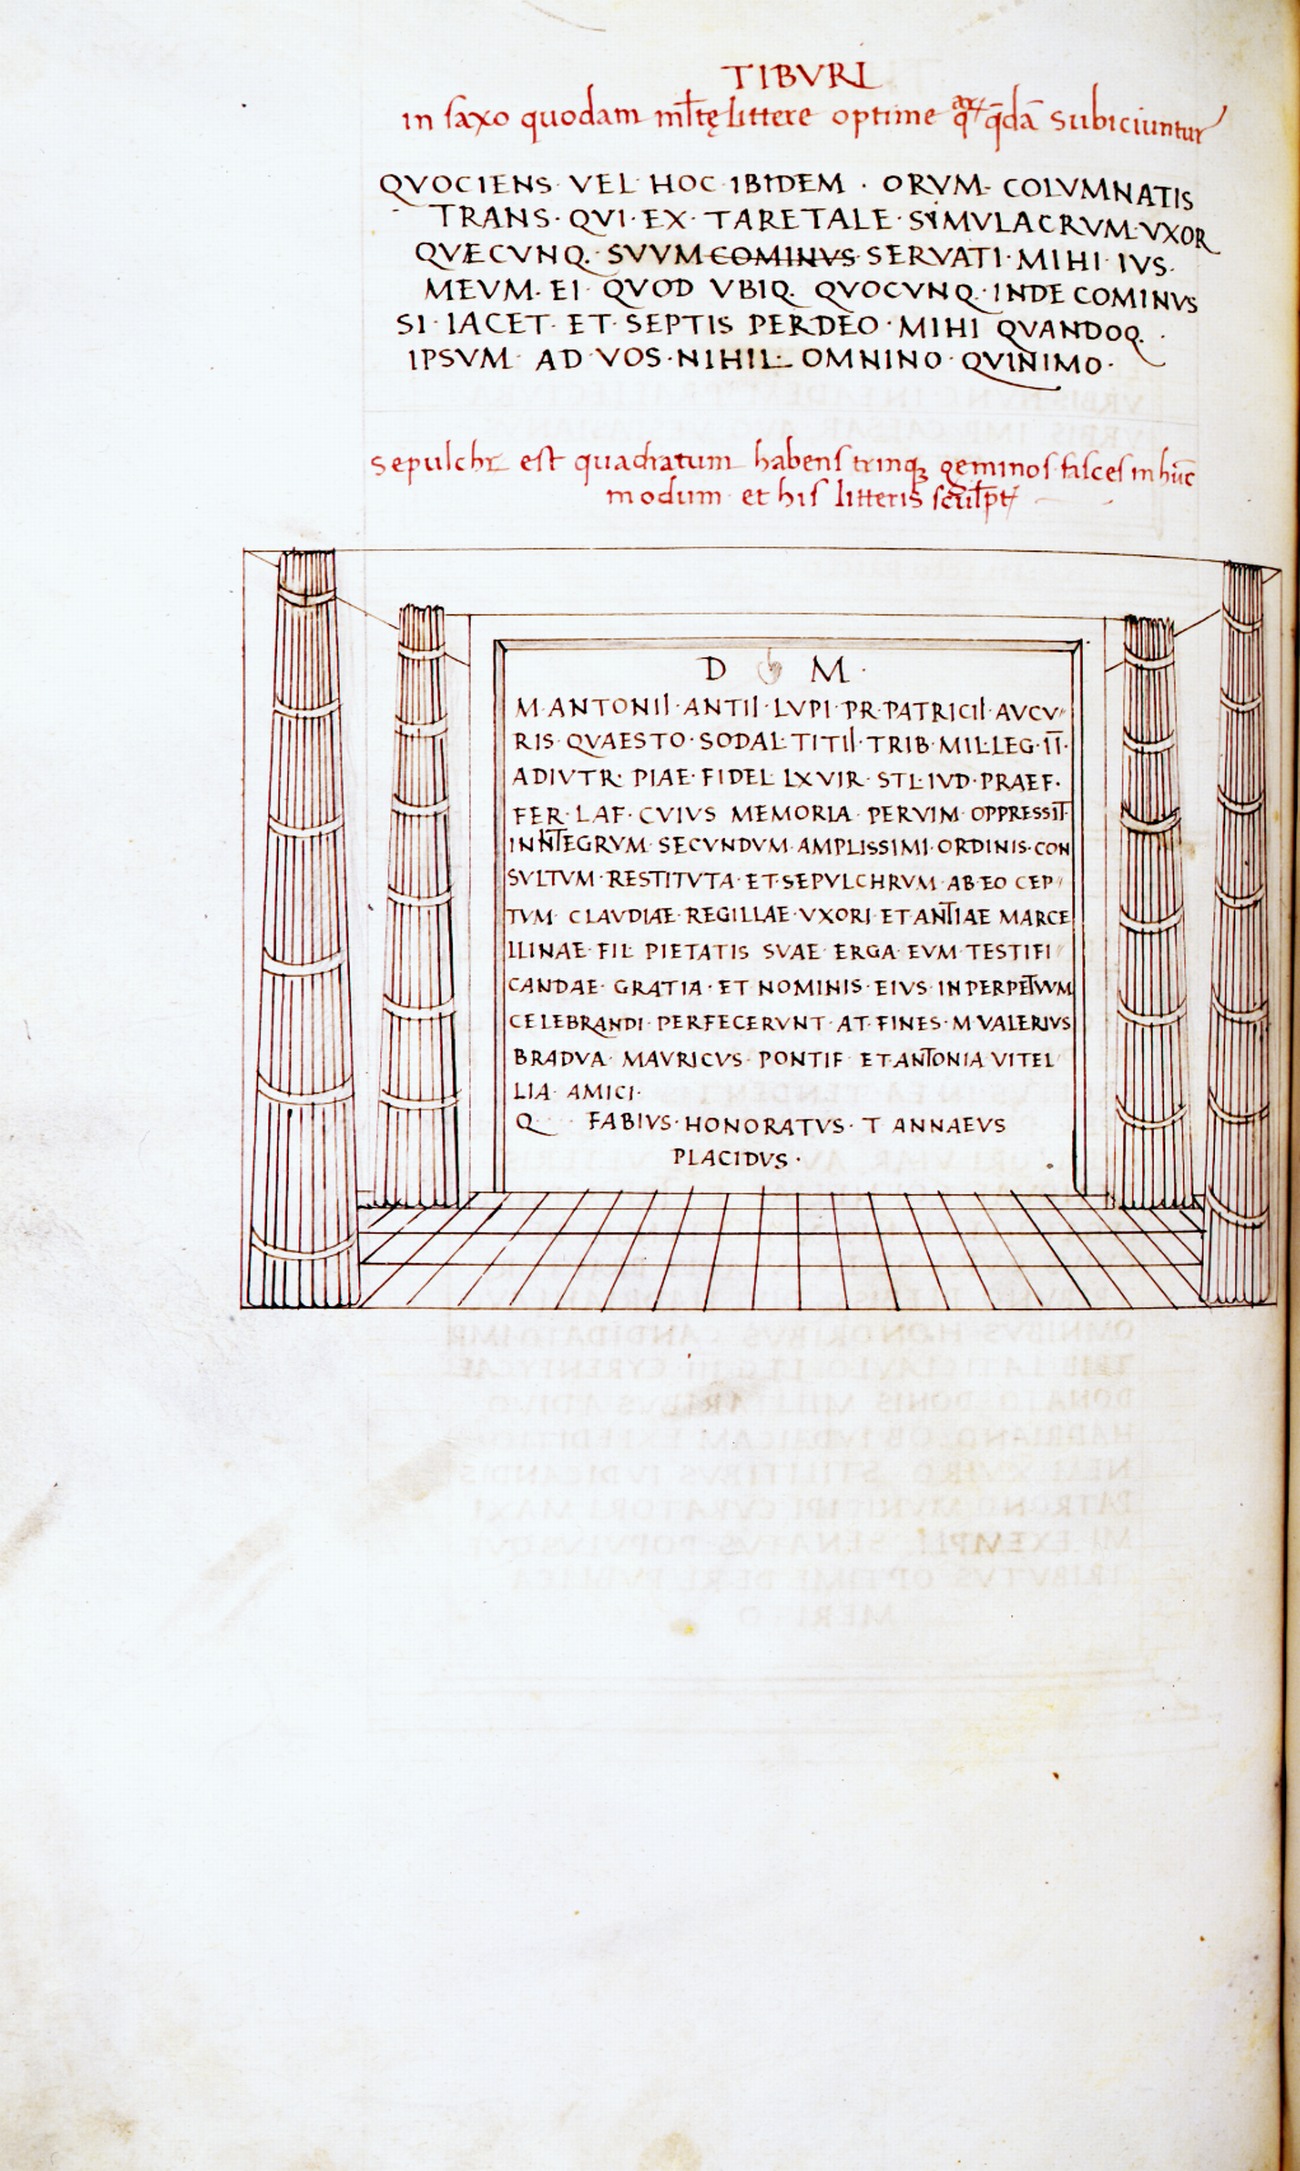 TIBVRI
in saxo quodam ml̄tę littere optime q̄ꝝ q̄dā subiciuntur
QVOCIENS VEL HOC IBIDEM · ORVM· COLVMNATIS
TRANS· QVI· EX· TARETALE· SIMVLACRVM·VXOR
QVÆCVNQ. SVVM COMINVS SERVATI· MIHI· IVS·
MEVM· EI· QVOD VBIQ. QVOCVNQ· INDE COMINVS
SI· IACET· ET· SEPTIS PERDEO· MIHI QVANDOQ. ·
IPSVM· AD VOS· NIHIL· OMNINO· QVINIMO·
sepulchr est quadratum habens trinqꝫ geminos fasces in hūc
modum et his litteris sculpt
D M ·
M·ANTONII·ANTII·LVPI·PR·PATRICII·AVCV
RIS QVAESTO·SODAL·TITII·TRIB·MIL·LEG·II·
ADIVTR· PIAE·FIDEL LXVIR· STL·IVD·PRAEF·
FER·LAF·CVIVS MEMORIA PERVIM OPPRESSIT
INNTEGRVM SECVNDVM AMPLISSIMI·ORDINIS·CON
SVLTVM·RESTITVTA·ET·SEPVLCHRVM AB·EO CEP
TVM CLAVDIAE·REGILLAE·VXORI·ET ANTIAE MARCE
LLINAE·FIL PIETATIS SVAE ERGA EVM TESTIFI
CANDAE· GRATIA·ET NOMINIS·EIVS·INPERPETVVM
CELEBRANDI·PERFECERVNT·AT·FINES·M VALERIVS
BRADVA MAVRICVS· PONTIF ET·ANTONIA VITEL
LIA· AMICI·
Q FABIVS·HONORATVS· T ANNAEVS
PLACIDVS ·